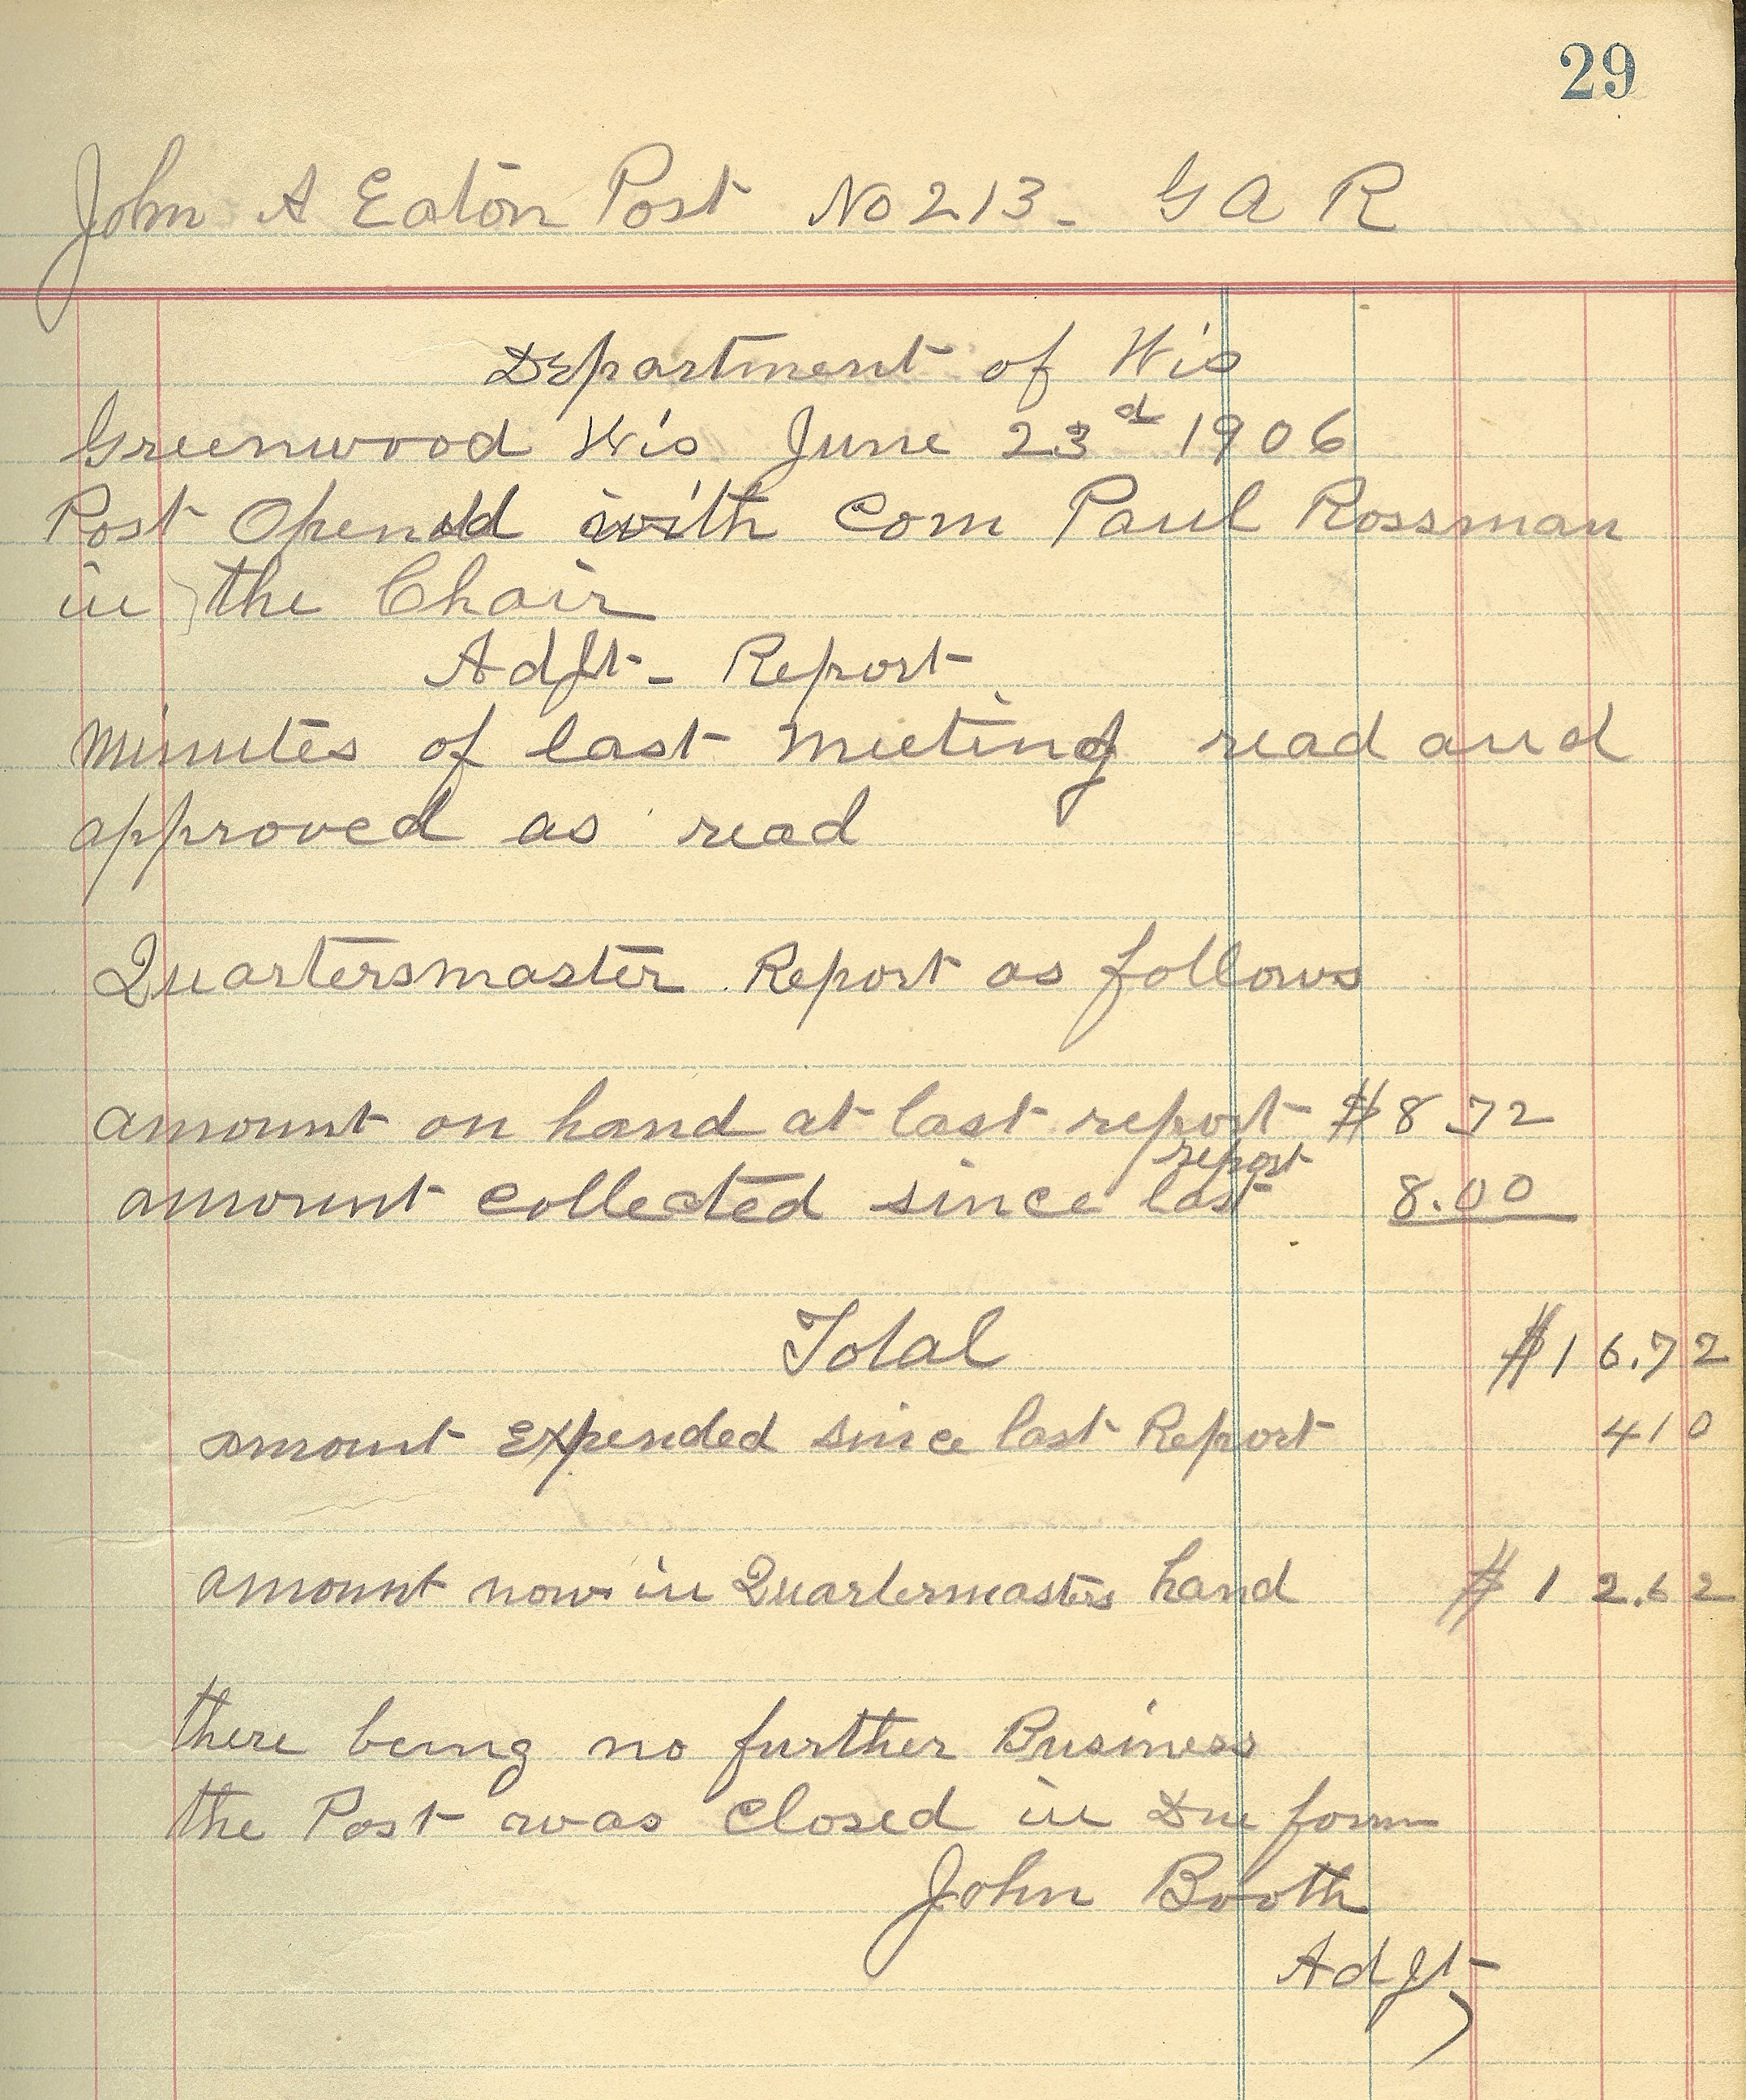 29
John A Eaton Post No 213 - G A R
Department of Wis
Greenwood Wis June 23d 1906
Post Opened with Com Paul Rossman
in the Chair
Adjt - Report
minutes of last meeting read and
approved as read
Quartersmaster Report as follows
amount on hand at last report $8.72
report
amount collected since last 8.00
Total $16.72
amount Expended since last Report 410
amount now in Quartermasters hand $12.62
there being no further Business
the Post was Closed in Due form
John Booth
Adjt